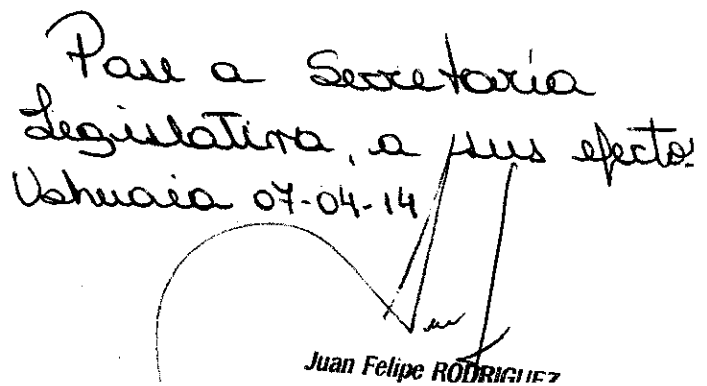 Pase a Secretaría
Legislativa, a sus efecto.
Ushuaia 07-04-14
Juan Felipe RODRIGUEZ